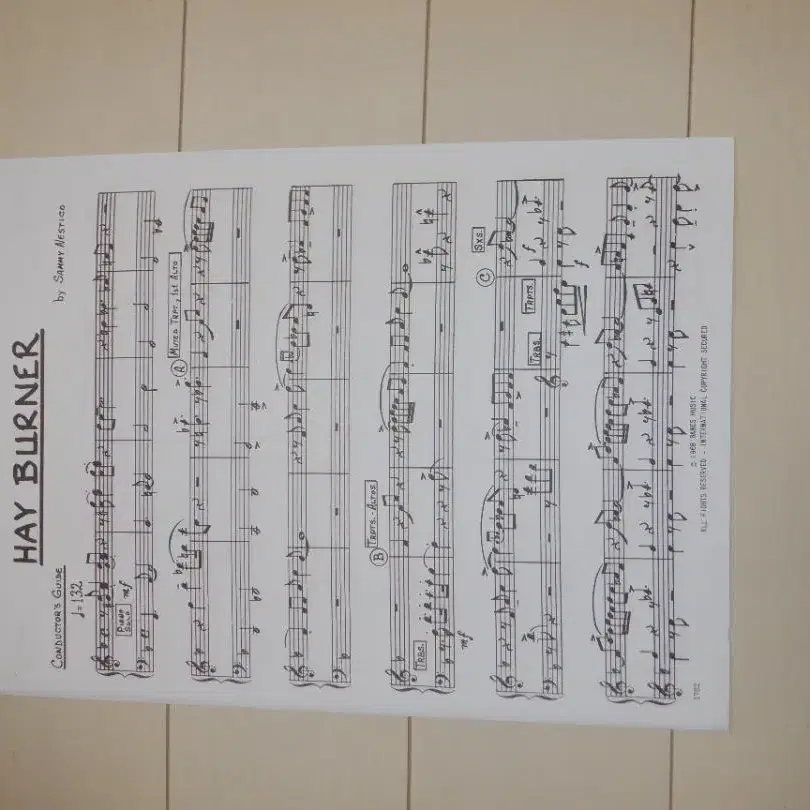 HAY BURNER
CONDUCTOR'S GUIDE
by SAMMY NESTICO
♩=132
PIANO SOLO
mf
A MUTED TRPT., 1st ALTO
B TRPTS.-ALTOS
TRBS.
mf
C SXS.
TRBS.
TRPTS.
f
f
© 1968 BANES MUSIC
ALL RIGHTS RESERVED - INTERNATIONAL COPYRIGHT SECURED